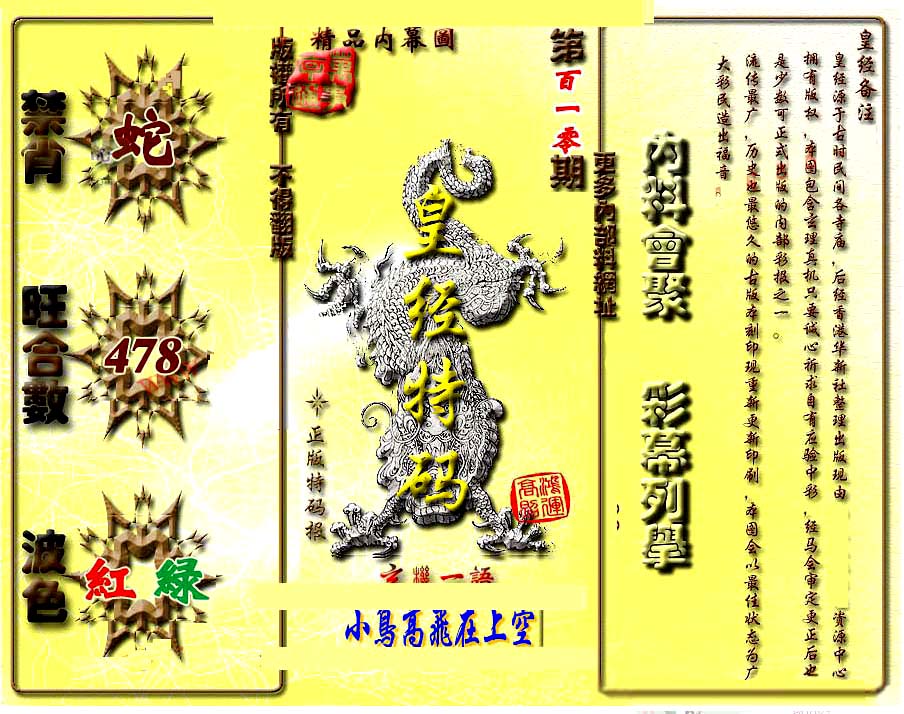 皇经备注
皇经源于古时民间各寺庙,后经香港华新社整理出版现由 资源中心
拥有版权,本图包含玄理真机只要诚心祈求自有应验中彩,经马会审定更正后也
是少数可正式出版的内部彩报之一。
流传最广,历史也最悠久的古版本刻印现重新更新印刷,本图会以最佳状态为广
大彩民造出福音
内料會聚
彩幕列舉
更多內部料網址
第百一零期
精品内幕圖
皇经特码
正版特码报
鴻運
高照
玄機一語
小鳥高飛在上空
版權所有 不得翻版
禁肖
蛇
旺合數
478
波色
紅 緑